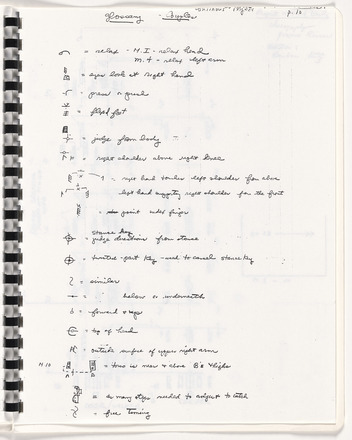 Glossary
p. 10
= relax - M.I - relax head
M.4 - relax left arm
= eyes look at right hand
= press or push
= flexed foot
= judge from body
= right shoulder above right knee
= right hand touches left shoulder from above
left hand supporting right shoulder from the front
= point index finger
stance key
= judge directions from stance
= twisted-part key - used to cancel stance key
= similar
= below or underneath
= forward & up
= top of head
= outside surface of upper right arm
M 10
= torso is near & above B's thighs
= as many steps needed to adjust to catch
= free turning